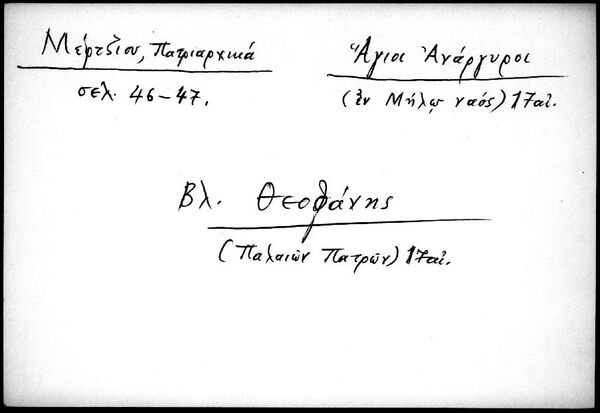 Μέρτζιου, Πατριαρχικά
σελ. 46-47.
Ἅγιοι Ἀνάργυροι
(ἐν Μήλῳ ναός) 17αἰ.
Βλ. Θεοφάνης
(Παλαιῶν Πατρῶν) 17αἰ.